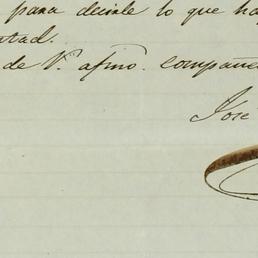 para decirle lo que ha
tad.
de V. afmo. compañe
Jose